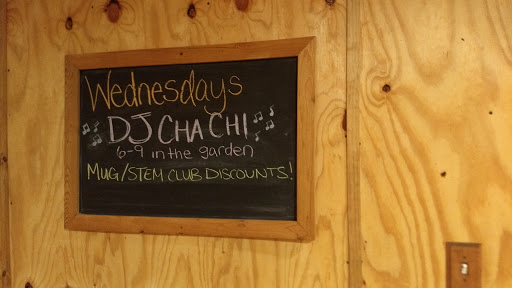 Wednesdays
DJ CHA CHI
6-9 in the garden
MUG/STEM CLUB DISCOUNTS!